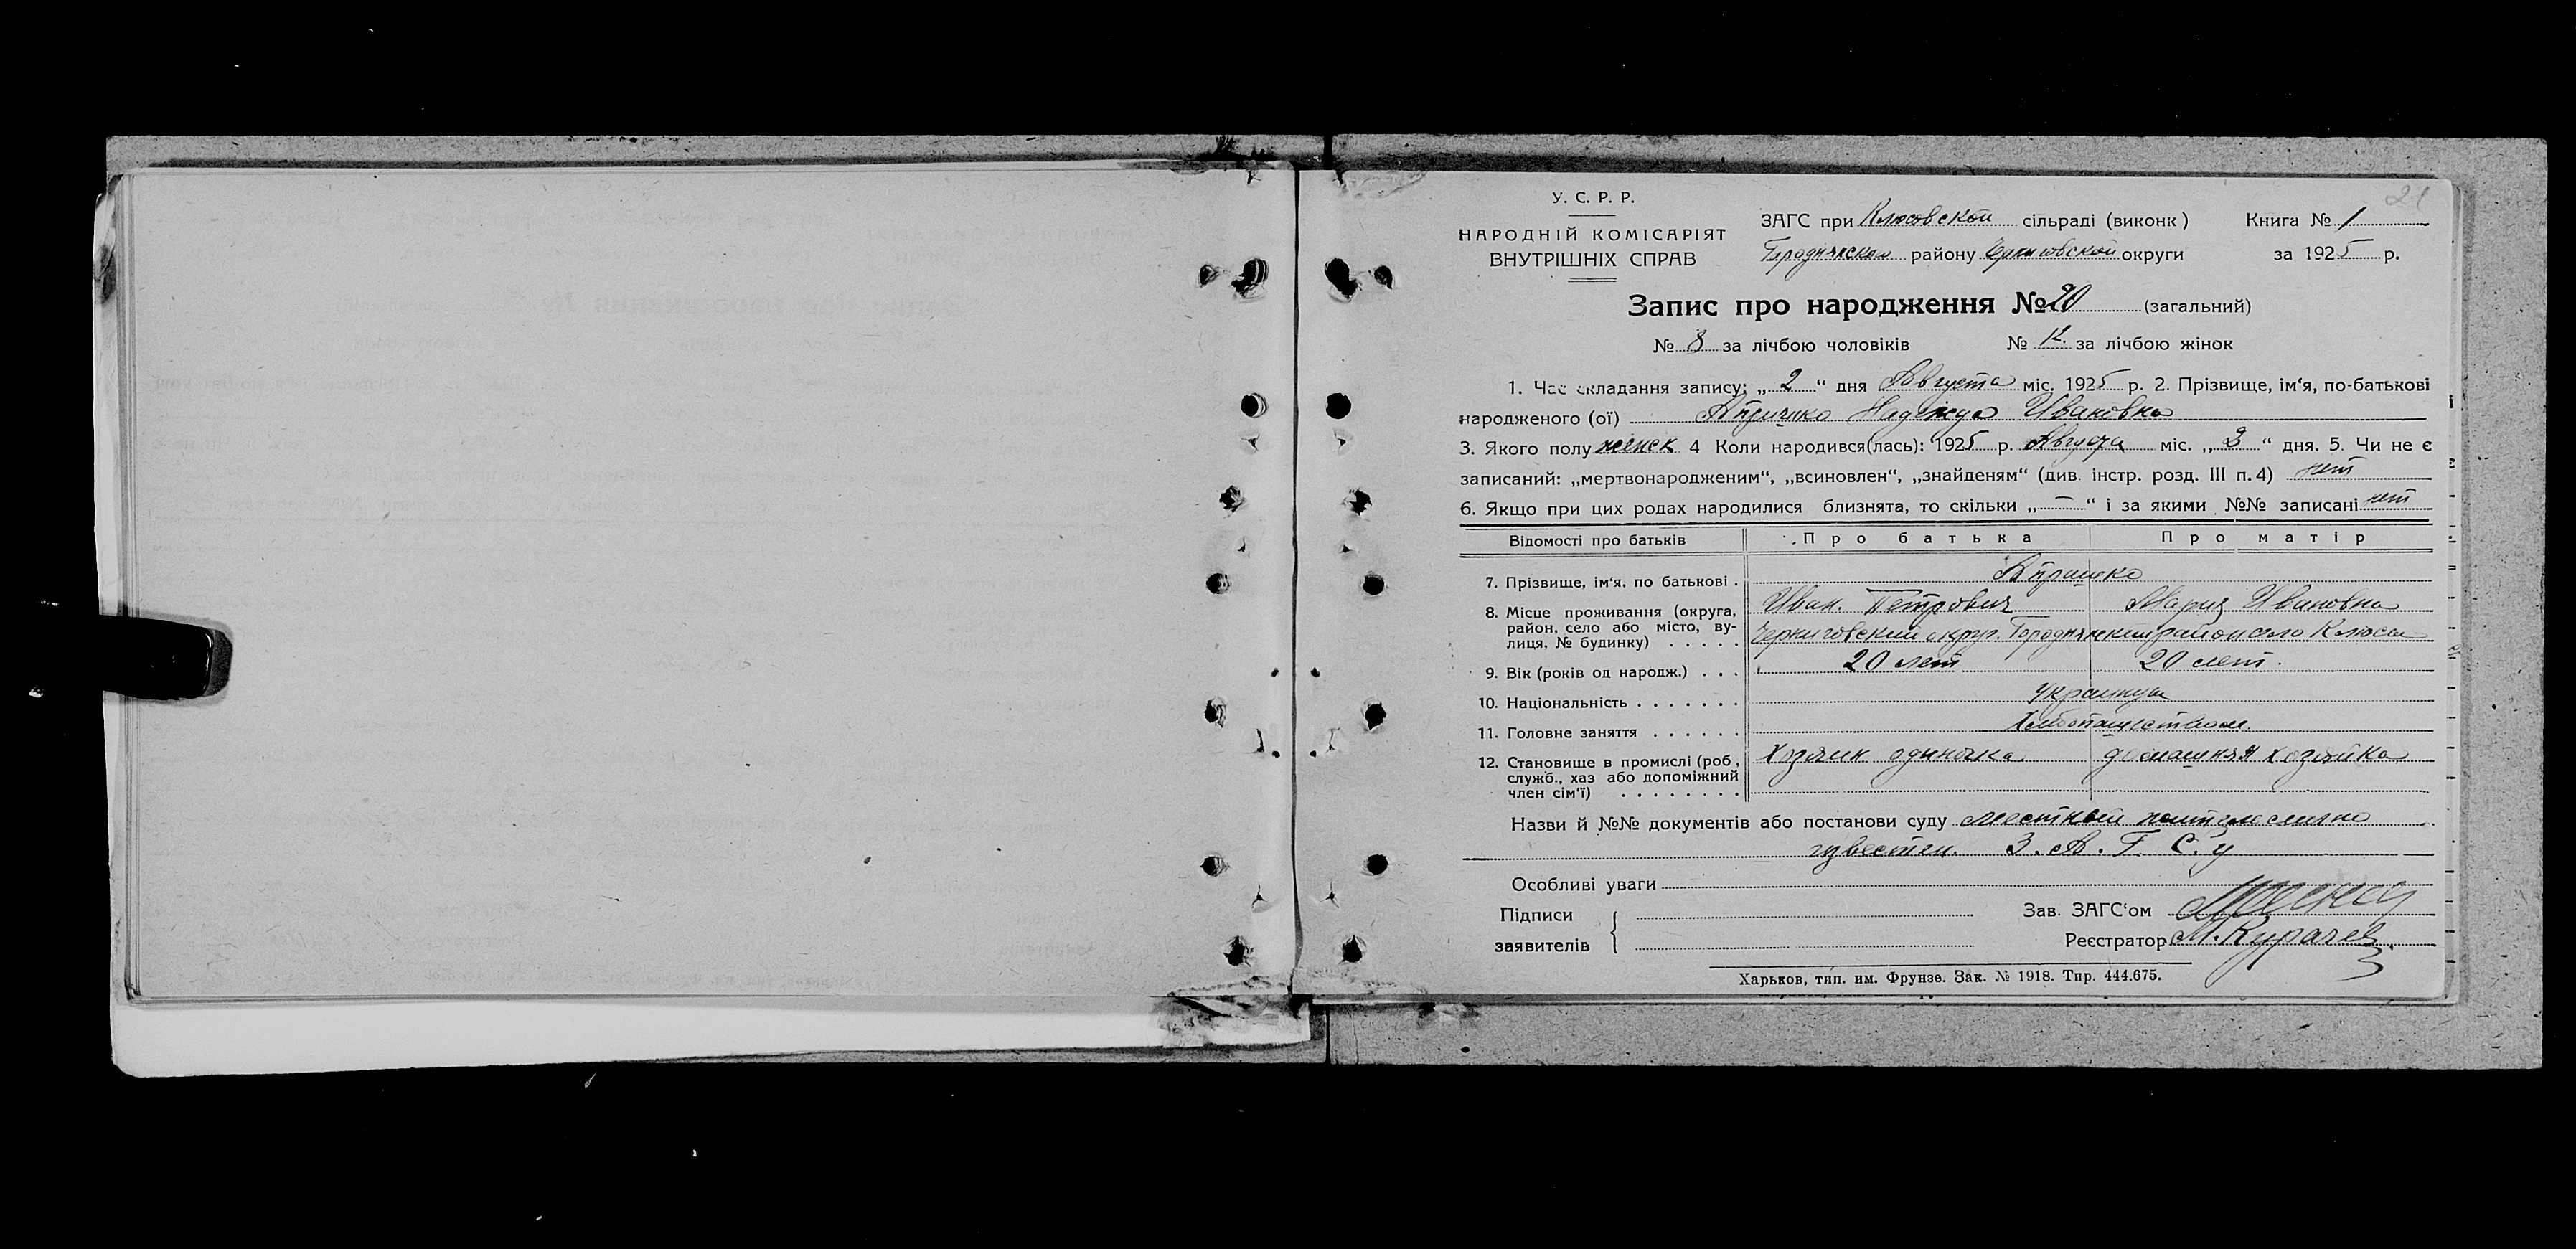 21
У. С. Р. Р.
НАРОДНІЙ КОМІСАРІЯТ
ВНУТРІШНІХ СПРАВ
ЗАГС при Клюсовской сільраді (виконк) Книга № 1
Городнянском району Черниговской округи за 1925 р.
Запис про народження № 20 (загальний)
№ 8 за лічбою чоловіків № 12. за лічбою жінок
1. Час складання запису: „ 2 “ дня Августа міс. 1925 р. 2. Прізвище, ім‘я, по-батькові
народженого (ої) Надежда Ивановна
3. Якого полу женск 4 Коли народився(лась): 1925 р. Августа міс. „ 2 “ дня. 5. Чи не є
записаний: „мертвонародженим“, „всиновлен“, „знайденям“ (див. інстр. розд. III п. 4) нет
6. Якщо при цих родах народилися близнята, то скільки „ — “ і за якими №№ записані нет
Відомості про батьків Про батька Про матір
7. Прізвище, ім‘я, по батькові .
Иван Петрович Мария Ивановна
8. Місце проживання (округа, район, село або місто, ву-лиця, № будинку) . . . . . Черниговский округ. Городнянский район село Клюсы
9. Вік (років од народж.) . . . 20 лет 20 лет.
10. Національність . . . . . . . украинцы
11. Головне заняття . . . . . . Хлебопашеством.
12. Становище в промислі (роб., служб., хаз або допоміжний член сім‘ї) . . . . . . . . Хозяин одиночка домашняя хозяйка
Назви й №№ документів або постанови суду местный
известен З. А. Г. С. у
Особливі уваги
Підписи
заявителів
Зав. ЗАГС‘ом
Реєстратор М. Курачев
Харьков, тип. им. Фрунзе. Зак. № 1918. Тир. 444.675.